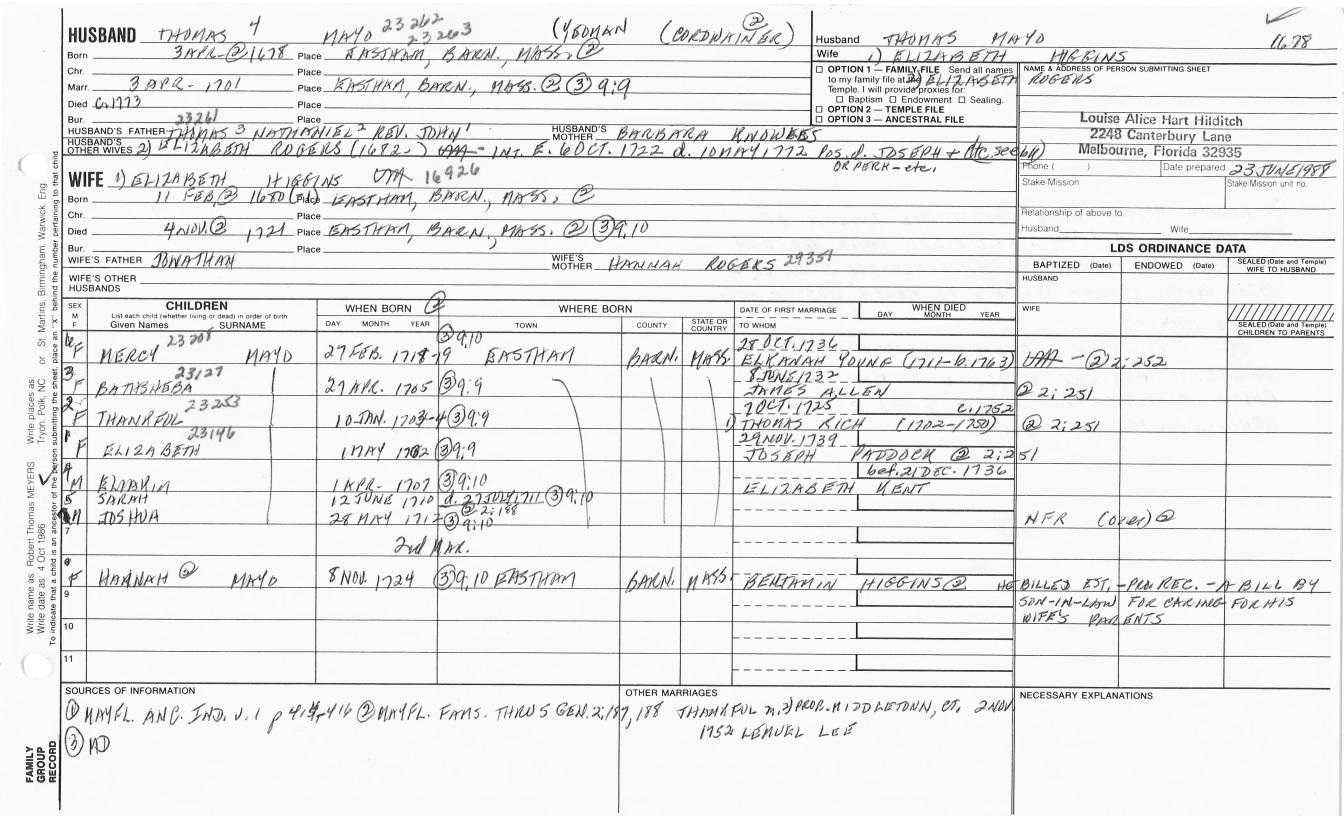 HUSBAND THOMAS 4 MAYO 23262 23263 (YEOMAN (CORDWAINER) ②
Born 3 APR ② 1678 Place EASTHAM, BARN., MASS. ②
Chr. Place
Marr. 3 APR - 1701 Place EASTHAM, BARN., MASS. ② ③ 9:9
Died C.1773 Place
Bur. Place
23261
HUSBAND'S FATHER THOMAS 3 NATHANIEL 2 REV. JOHN 1 HUSBAND'S MOTHER BARBARA KNOWLES
HUSBAND'S OTHER WIVES 2) ELIZABETH ROGERS (1682- ) INT. E. 6 OCT. 1722 d. 10 MAY 1772 POS. d. JOSEPH +
OR PERH - etc.
Husband THOMAS MAYO 1678
Wife 1) ELIZABETH HIGGINS
2) ELIZABETH ROGERS
☐ OPTION 1 — FAMILY FILE Send all names to my family file at
Temple. I will provide proxies for:
☐ Baptism ☐ Endowment ☐ Sealing.
☐ OPTION 2 — TEMPLE FILE
☐ OPTION 3 — ANCESTRAL FILE
NAME & ADDRESS OF PERSON SUBMITTING SHEET
Louise Alice Hart Hilditch
2248 Canterbury Lane
Melbourne, Florida 32935
Phone ( ) Date prepared 23 JUNE 1988
Stake Mission Stake Mission unit no.
Relationship of above to
Husband Wife
WIFE 1) ELIZABETH HIGGINS 16926
Born 11 FEB ② 1680 Place EASTHAM, BARN., MASS. ②
Chr. Place
Died 4 NOV. ② 1721 Place EASTHAM, BARN., MASS. ② ③ 9:10
Bur. Place
WIFE'S FATHER JONATHAN WIFE'S MOTHER HANNAH ROGERS 29351
WIFE'S OTHER HUSBANDS
LDS ORDINANCE DATA
BAPTIZED (Date) ENDOWED (Date) SEALED (Date and Temple) WIFE TO HUSBAND
HUSBAND
WIFE
SEALED (Date and Temple) CHILDREN TO PARENTS
SEX M F
CHILDREN
List each child (whether living or dead) in order of birth
Given Names SURNAME
WHEN BORN ②
DAY MONTH YEAR
WHERE BORN
TOWN COUNTY STATE OR COUNTRY
DATE OF FIRST MARRIAGE
TO WHOM
WHEN DIED
DAY MONTH YEAR
F MERCY 23208 MAYO 27 FEB. 1718-19 ③ 9:10 EASTHAM BARN. MASS. 28 OCT. 1736
ELKANAH YOUNG (1711-b.1763) - ② 2:252
3 F BATHSHEBA 23127 27 APR. 1705 ③ 9:9 8 JUNE 1732
JAMES ALLEN ② 2:251
2 F THANKFUL 23253 10 JAN. 1703-4 ③ 9:9 7 OCT. 1725 c.1752
1) THOMAS RICH (1702-1750) ② 2:251
1 F ELIZABETH 23146 1 MAY 1702 ③ 9:9 29 NOV. 1739
JOSEPH PADDOCK ② 2:251
4 M ELIAKIM 1 APR - 1707 ③ 9:10 bef. 21 DEC. 1736
ELIZABETH KENT
5 SARAH 12 JUNE 1710 d. 27 JULY 1711 ③ 9:10
② 2:188
M JOSHUA 28 MAY 1712 ③ 9:10 NFR (over) ②
7
2nd MAR.
F HANNAH ② MAYO 8 NOV. 1724 ③ 9:10 EASTHAM BARN. MASS. BENJAMIN HIGGINS ② HE BILLED EST. - PRO. REC. - A BILL BY
9 SON-IN-LAW FOR CARING FOR HIS
WIFE'S PARENTS
10
11
SOURCES OF INFORMATION
① MAYFL. ANC. IND. V. 1 p 415-416 ② MAYFL. FAMS. THRU 5 GEN. 2:187, 188
③ MD
OTHER MARRIAGES
THANKFUL m. 2) PROB. MIDDLETOWN, CT. 2 NOV.
1752 LEMUEL LEE
NECESSARY EXPLANATIONS
Write name as: Robert Thomas MEYERS Write places as: Tryon, Polk, NC or St. Martins, Birmingham, Warwick, Eng
Write date as: 4 Oct 1986
To indicate that a child is an ancestor of the person submitting the sheet, place an "X" behind the number pertaining to that child
FAMILY GROUP RECORD